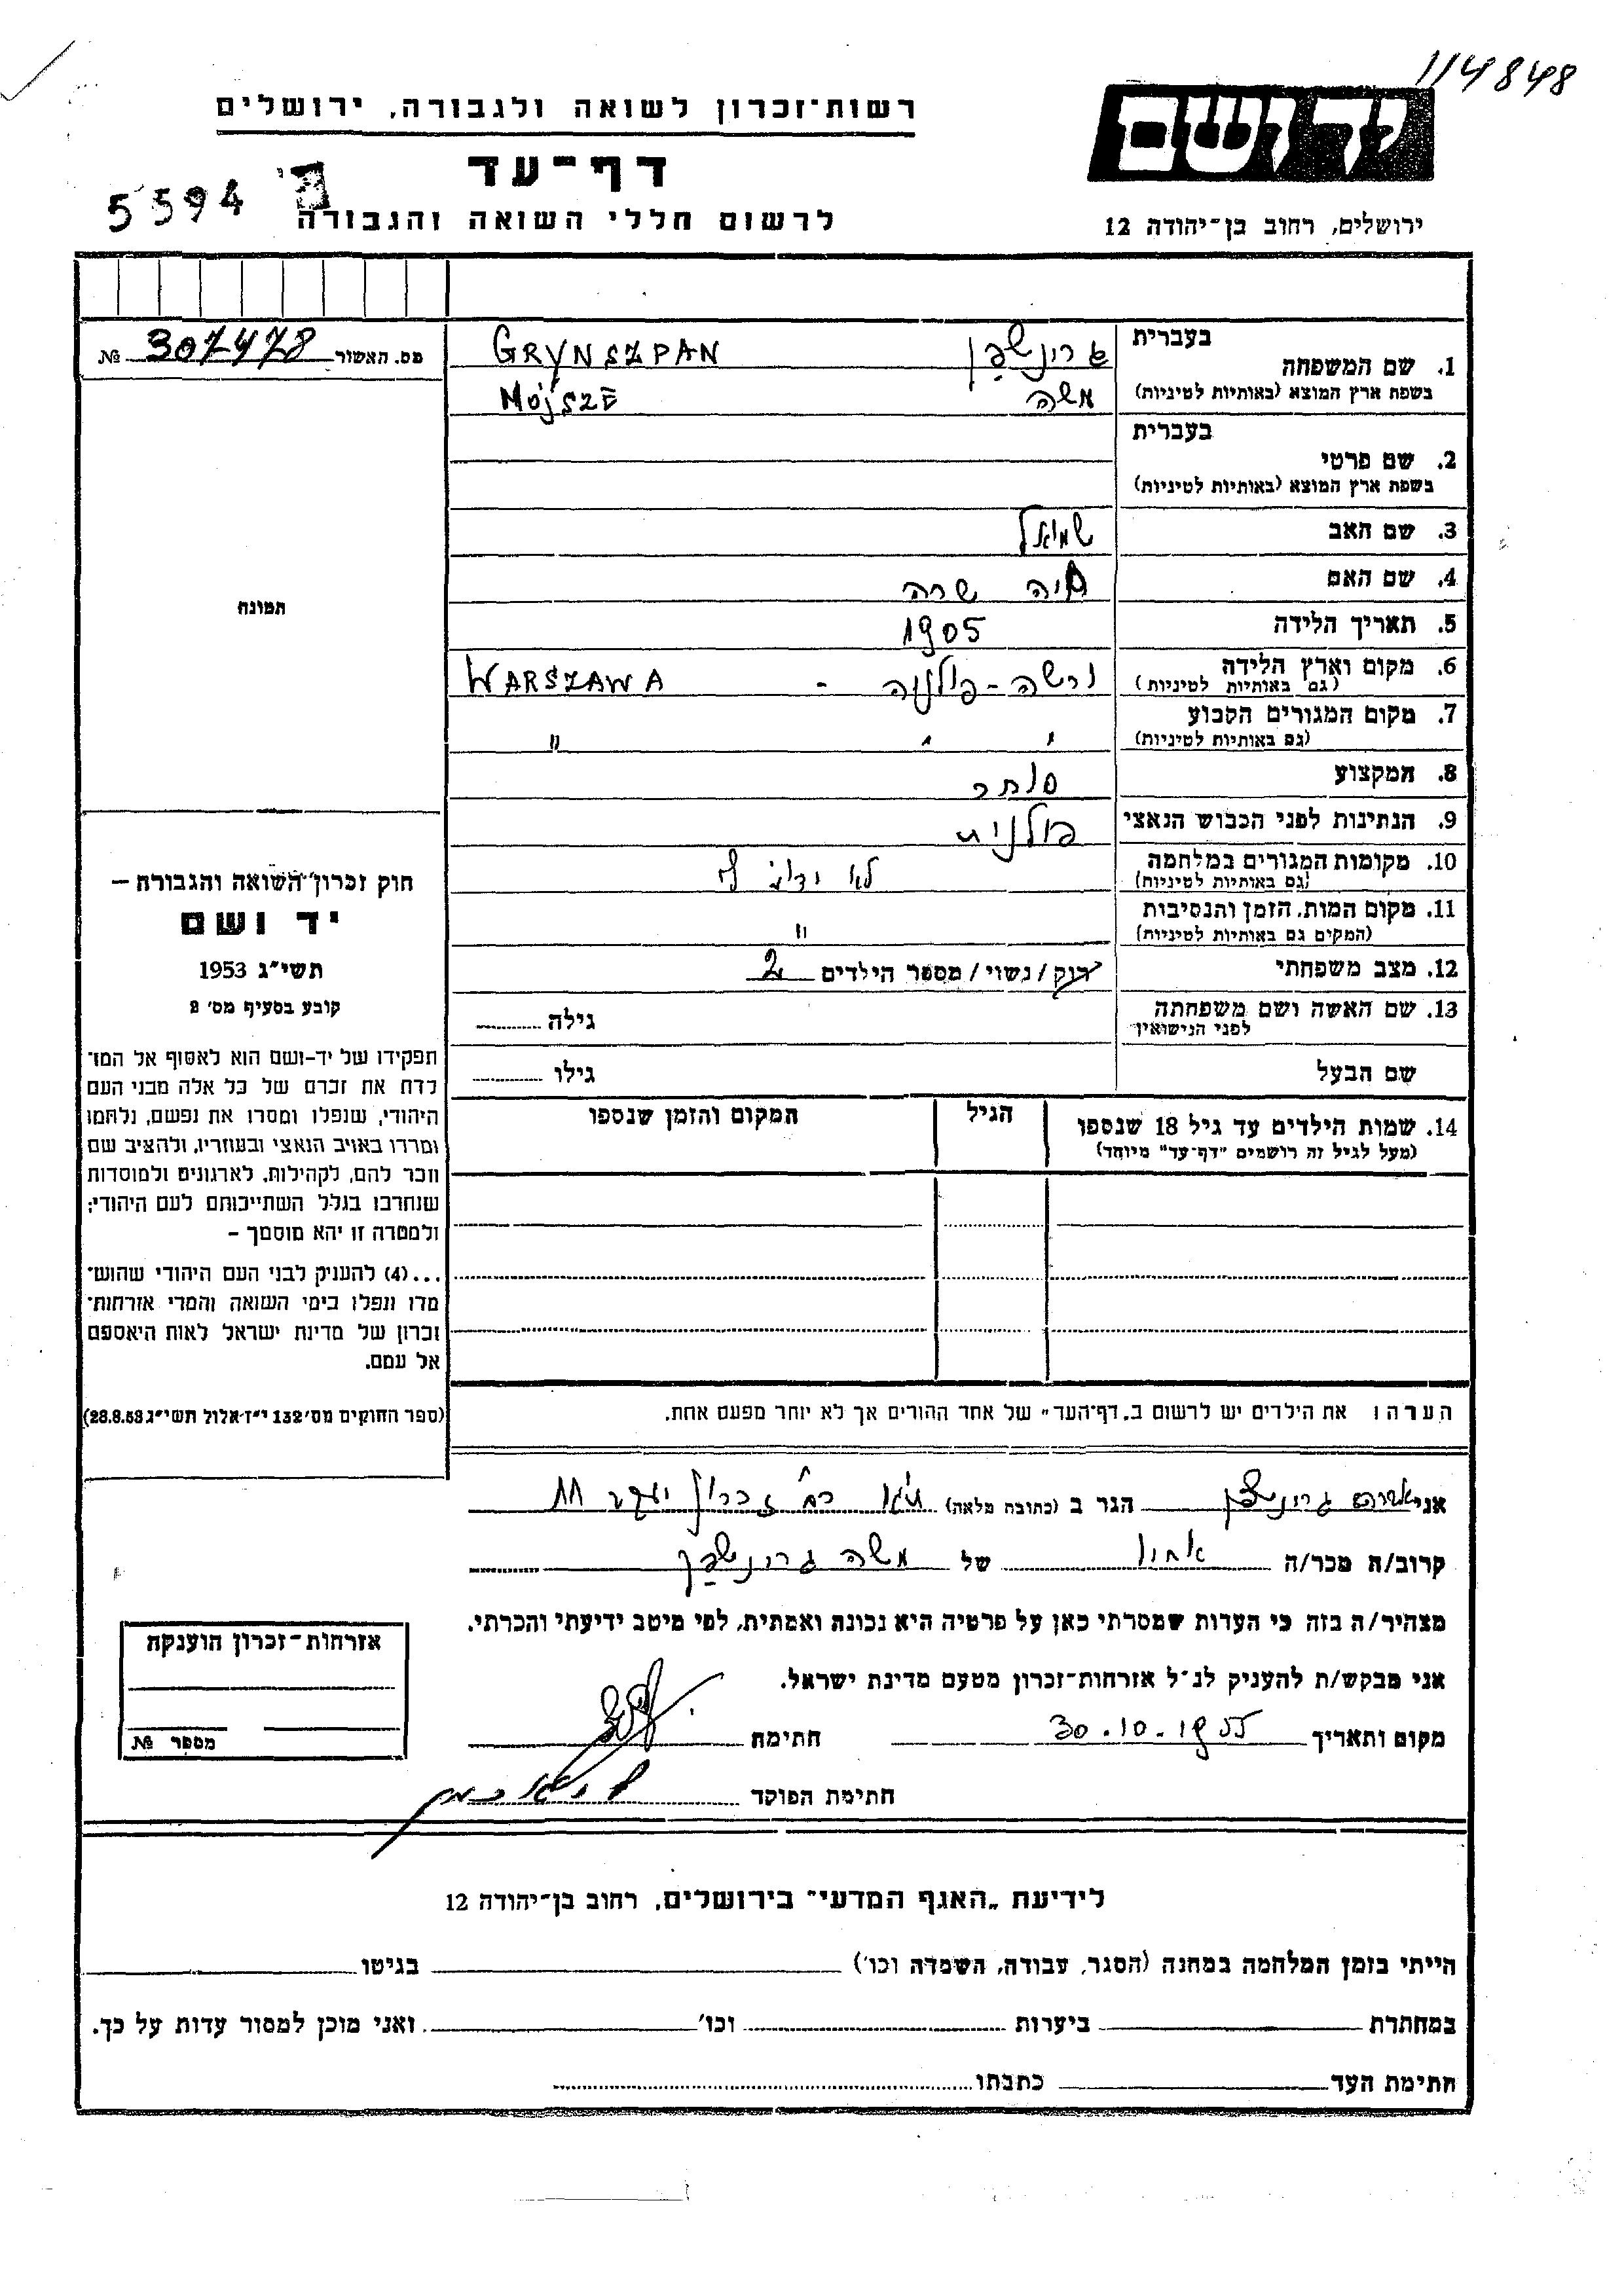 114848
יד ושם
רשות־זכרון לשואה ולגבורה, ירושלים
דף־עד
5594
לרשום חללי השואה והגבורה
ירושלים, רחוב בן־יהודה 12
מס. האשור 307478 №
בעברית
1. שם המשפחה גרינשפן GRYNSZPAN
בשפת ארץ המוצא (באותיות לטיניות) משה MOJSZE
בעברית
2. שם פרטי
בשפת ארץ המוצא (באותיות לטיניות)
3. שם האב שמואל
4. שם האם חיה שרה
5. תאריך הלידה 1905
6. מקום וארץ הלידה ורשה - פולניה - WARSZAWA
(גם באותיות לטיניות)
7. מקום המגורים הקבוע " " "
(גם באותיות לטיניות)
8. המקצוע סוחר
9. הנתינות לפני הכבוש הנאצי פולנית
10. מקומות המגורים במלחמה לא ידוע לי
(גם באותיות לטיניות)
11. מקום המות, הזמן והנסיבות "
(המקום גם באותיות לטיניות)
12. מצב משפחתי רוק / נשוי / מספר הילדים 2
13. שם האשה ושם משפחתה גילה
לפני הנישואין
שם הבעל גילו
14. שמות הילדים עד גיל 18 שנספו הגיל המקום והזמן שנספו
(מעל לגיל זה רושמים "דף־עד" מיוחד)
תמונה
חוק זכרון השואה והגבורה –
יד ושם
תשי"ג 1953
קובע בסעיף מס' 2
תפקידו של יד-ושם הוא לאסוף אל המו־
לדת את זכרם של כל אלה מבני העם
היהודי, שנפלו ומסרו את נפשם, נלחמו
ומרדו באויב הנאצי ובעוזריו, ולהציב שם
וזכר להם, לקהילות, לארגונים ולמוסדות
שנחרבו בגלל השתייכותם לעם היהודי;
ולמטרה זו יהא מוסמך –
...(4) להעניק לבני העם היהודי שהוש־
מדו ונפלו בימי השואה והמרי אזרחות־
זכרון של מדינת ישראל לאות היאספם
אל עמם.
(ספר החוקים מס' 132 י"ז אלול תשי"ג 28.8.53)
הערה: את הילדים יש לרשום ב„דף־העד" של אחד ההורים אך לא יותר מפעם אחת.
אני גרינשפן הגר ב (כתובת מלאה) זכרון יעקב
קרוב/ה מכר/ה אחיו של משה גרינשפן
מצהיר/ה בזה כי העדות שמסרתי כאן על פרטיה היא נכונה ואמתית, לפי מיטב ידיעתי והכרתי.
אני מבקש/ת להעניק לנ"ל אזרחות־זכרון מטעם מדינת ישראל.
מקום ותאריך 30.10.1955 חתימה
חתימת הפוקד
אזרחות־זכרון הוענקה
מספר №
לידיעת „האגף המדעי" בירושלים, רחוב בן־יהודה 12
הייתי בזמן המלחמה במחנה (הסגר, עבודה, השמדה וכו') בגיטו
במחתרת ביערות וכו' ואני מוכן למסור עדות על כך.
חתימת העד כתבתו